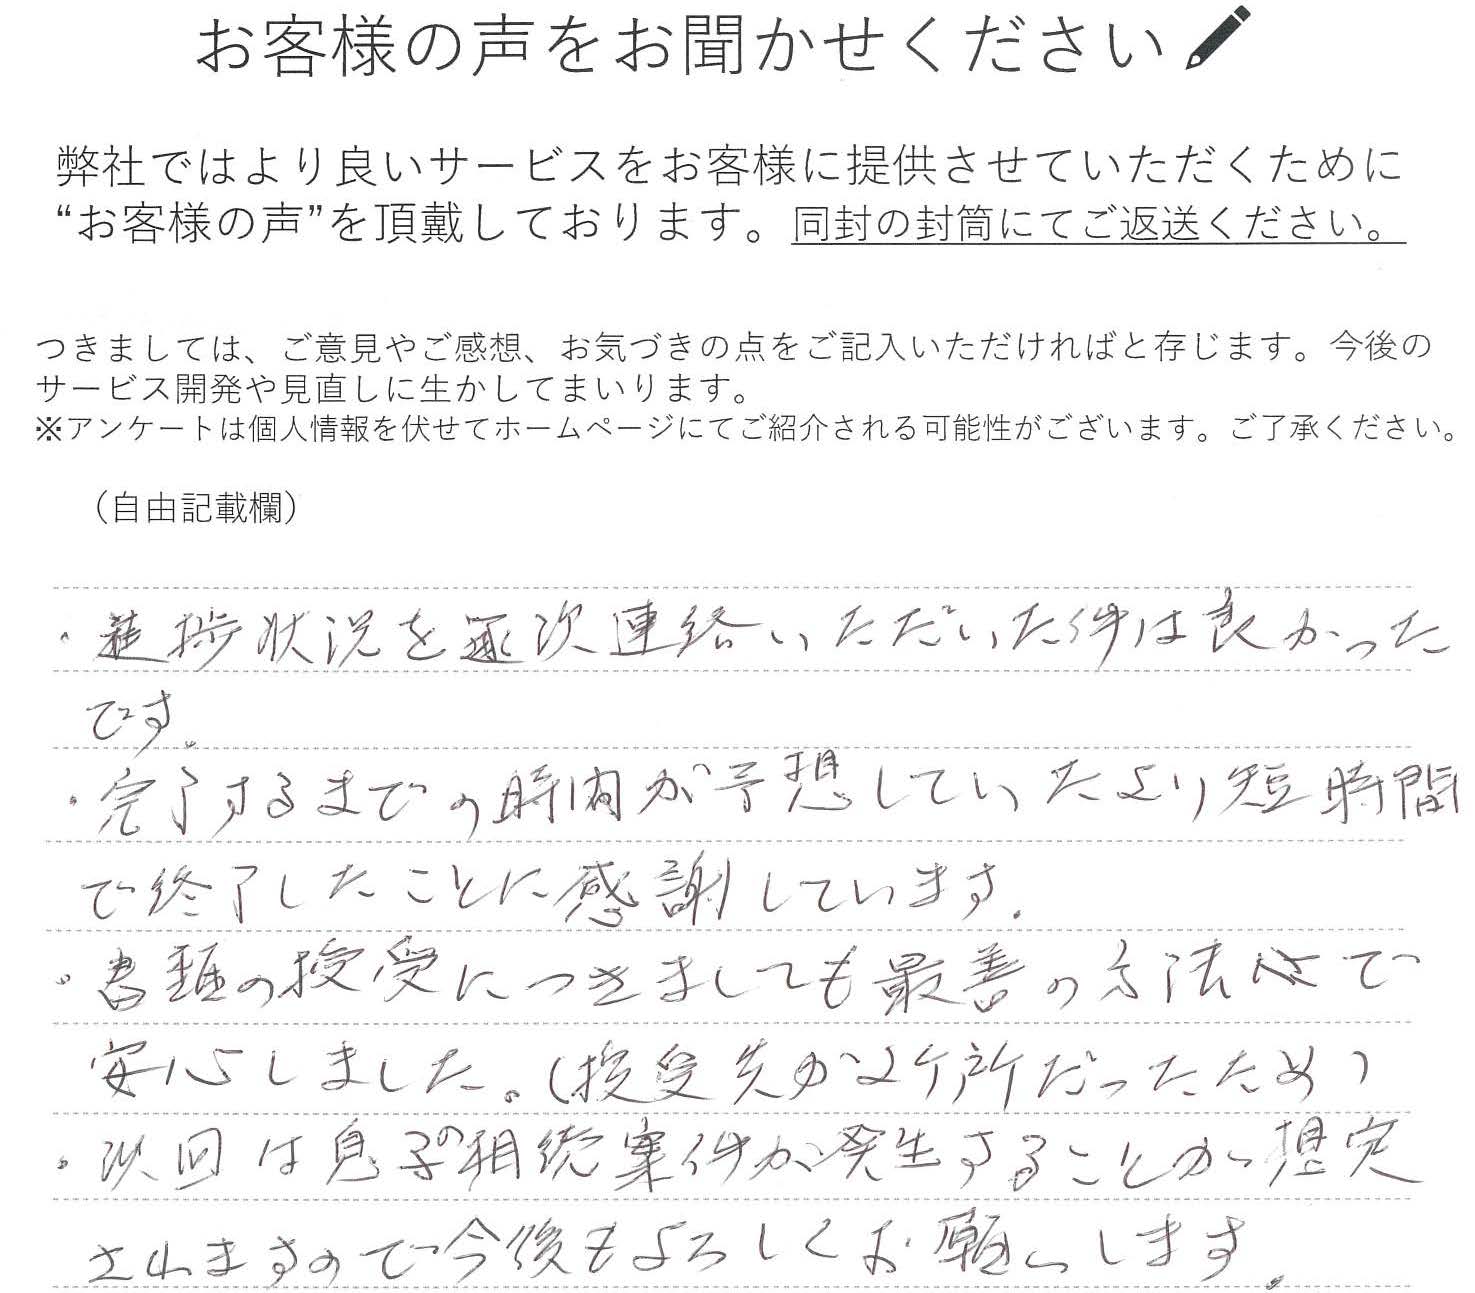 お客様の声をお聞かせください
弊社ではより良いサービスをお客様に提供させていただくために
“お客様の声”を頂戴しております。同封の封筒にてご返送ください。
つきましては、ご意見やご感想、お気づきの点をご記入いただければと存じます。今後の
サービス開発や見直しに生かしてまいります。
※アンケートは個人情報を伏せてホームページにてご紹介される可能性がございます。ご了承ください。
（自由記載欄）
・進捗状況を逐次連絡いただいた件は良かった
です。
・完了するまでの時間が予想していたより短時間
で終了したことに感謝しています。
・書類の授受につきましても最善の方法で
安心しました。（授受先が2ケ所だったため）
・次回は息子の相続案件が発生することが想定
されますので今後もよろしくお願いします。